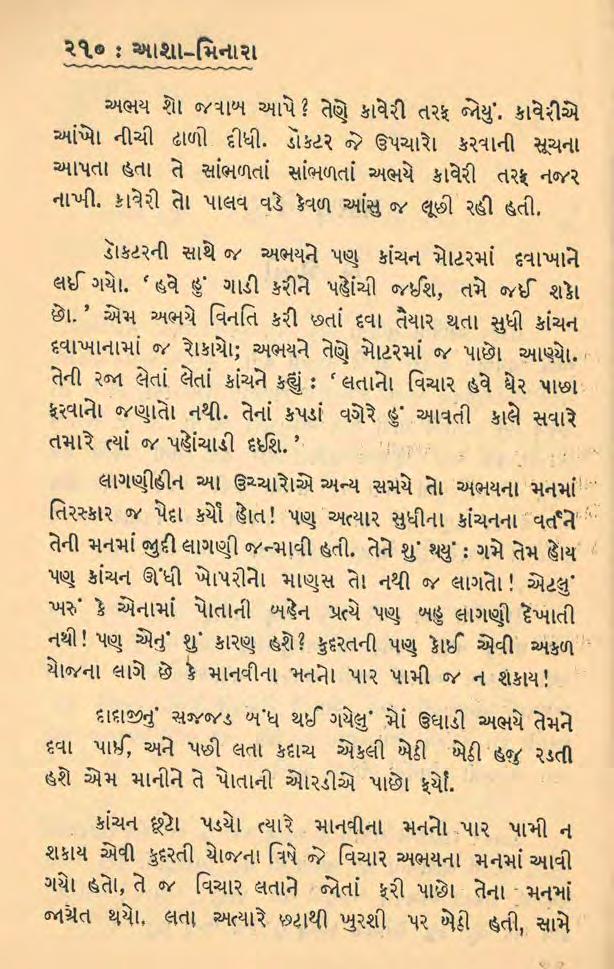 ૨૧૦ : આશા-મિનારા
અભય શો જવાબ આપે? તેણે કાવેરી તરફ જોયું. કાવેરીએ
આંખો નીચી ઢાળી દીધી. ડૉકટર જે ઉપચારો કરવાની સૂચના
આપતા હતા તે સાંભળતાં સાંભળતાં અભયે કાવેરી તરફ નજર
નાખી. કાવેરી તો પાલવ વડે કેવળ આંસુ જ લૂછી રહી હતી.
ડૉકટરની સાથે જ અભયને પણ કાંચન મોટરમાં દવાખાને
લઈ ગયો. ‘હવે હું ગાડી કરીને પહોંચી જઈશ, તમે જઈ શકો
છો.’ એમ અભયે વિનતિ કરી છતાં દવા તૈયાર થતા સુધી કાંચન
દવાખાનામાં જ રોકાયો; અભયને તેણે મોટરમાં જ પાછો આણ્યો.
તેની રજા લેતાં લેતાં કાંચને કહ્યું : ‘લતાનો વિચાર હવે ઘેર પાછા
ફરવાનો જણાતો નથી. તેનાં કપડાં વગેરે હું આવતી કાલે સવારે
તમારે ત્યાં જ પહોંચાડી દઈશ.’
લાગણીહીન આ ઉચ્ચારોએ અન્ય સમયે તો અભયના મનમાં
તિરસ્કાર જ પેદા કર્યો હોત! પણ અત્યાર સુધીના કાંચનના વર્તને
તેની મનમાં જુદી લાગણી જન્માવી હતી. તેને શું થયું : ગમે તેમ હોય
પણ કાંચન ઊંધી ખોપરીનો માણસ તો નથી જ લાગતો! એટલું
ખરું કે એનામાં પોતાની બહેન પ્રત્યે પણ બહુ લાગણી દેખાતી
નથી! પણ એનું શું કારણ હશે? કુદરતની પણ કોઈ એવી અકળ
યોજના લાગે છે કે માનવીના મનનો પાર પામી જ ન શકાય!
દાદાજીનું સજ્જડ બંધ થઈ ગયેલું મોં ઉઘાડી અભયે તેમને
દવા પાઈ, અને પછી લતા કદાચ એકલી બેઠી બેઠી હજુ રડતી
હશે એમ માનીને તે પોતાની ઓરડીએ પાછો ફર્યો.
કાંચન છૂટો પડયો ત્યારે માનવીના મનનો પાર પામી ન
શકાય એવી કુદરતી યોજના વિષે જે વિચાર અભયના મનમાં આવી
ગયો હતો, તે જ વિચાર લતાને જોતાં ફરી પાછો તેના મનમાં
જાગ્રત થયો. લતા અત્યારે છટાથી ખુરશી પર બેઠી હતી, સામે